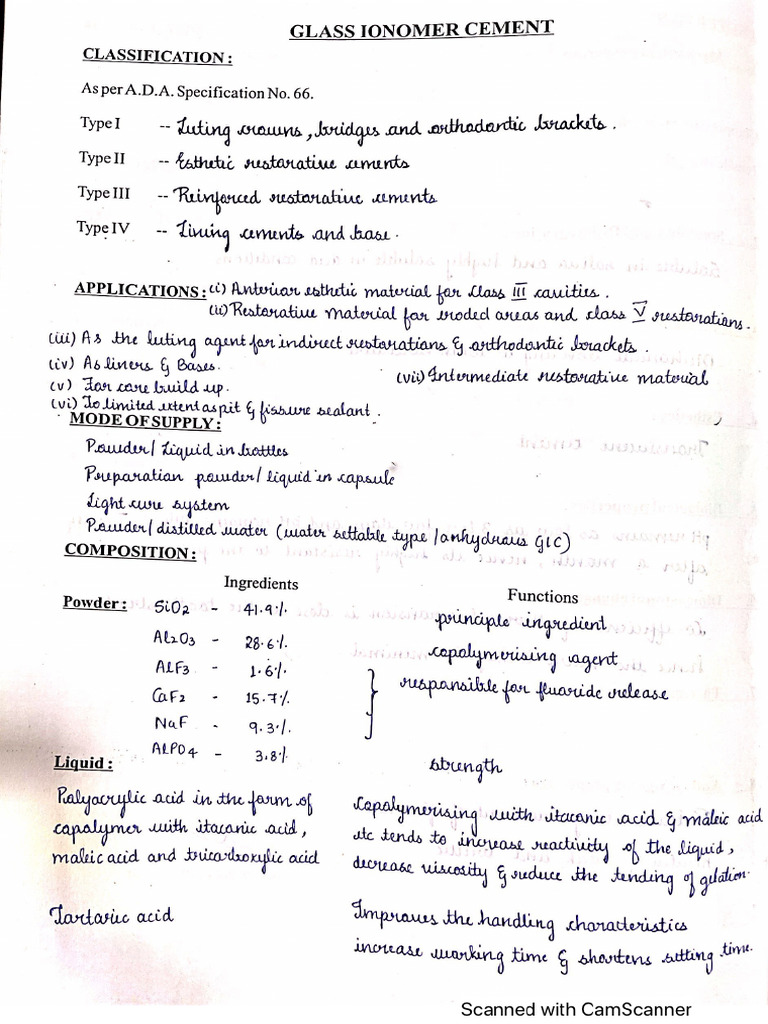 GLASS IONOMER CEMENT
CLASSIFICATION :
As per A.D.A. Specification No. 66.
Type I -- Luting crowns, bridges and orthodontic brackets.
Type II -- Esthetic restorative cements
Type III -- Reinforced restorative cements
Type IV -- Lining cements and base.
APPLICATIONS : (i) Anterior esthetic material for class III cavities.
(ii) Restorative material for eroded areas and class V restorations.
(iii) As the luting agent for indirect restorations & orthodontic brackets.
(iv) As liners & Bases.
(v) For core build up. (vii) Intermediate restorative material
(vi) To limited extent as pit & fissure sealant.
MODE OF SUPPLY :
Powder/Liquid in bottles
Preparation powder/liquid in capsule
Light cure system
Powder/distilled water (water settable type/anhydrous GIC)
COMPOSITION :
Ingredients Functions
Powder : SiO2 - 41.9% principle ingredient
Al2O3 - 28.6% copolymerising agent
AlF3 - 1.6% responsible for fluoride release
CaF2 - 15.7%
NaF - 9.3%
AlPO4 - 3.8% strength
Liquid :
Polyacrylic acid in the form of Copolymerising with itaconic acid & maleic acid
copolymer with itaconic acid, etc tends to increase reactivity of the liquid,
maleic acid and tricarboxylic acid decrease viscosity & reduce the tending of gelation.
Tartaric acid Improves the handling characteristics
increase working time & shortens setting time.
Scanned with CamScanner